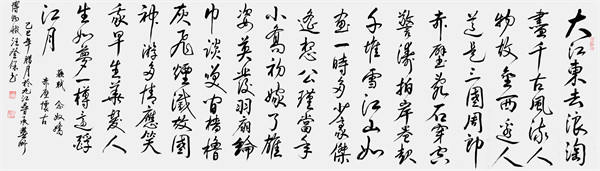 大江東去浪淘
盡千古風流人
物故壘西邊人
道是三國周郎
赤壁亂石穿空
驚濤拍岸卷起
千堆雪江山如
畫一時多少豪傑
遙想公瑾當年
小喬初嫁了雄
姿英發羽扇綸
巾談笑間檣櫓
灰飛煙滅故國
神游多情應笑
我早生華髮人
生如夢一樽還酹
江月
蘇軾 念奴嬌
赤壁懷古
巳年臘月於九江
博物館汪